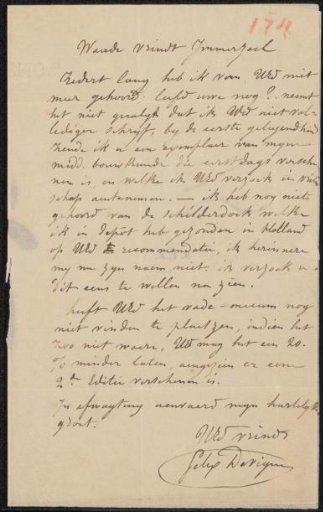 174
Waarde Vriendt Immerzeel
Zedert lang heb ik van UEd niet
meer gehoord. Leefd uwe nog? neemt
het niet qualyk dat ik UEd niet vol-
lediger schryf, by de eerste gelegendheid
zende ik u een exemplaar van myne
midd. bouwkunde die eerstdags verschenen
is, en welke ik UEd verzoek in vriend
schap aantenemen. — ik heb nog niets
gehoord van de schilderdoek welke
ik in depot heb gezonden in Holland
op UEd recommandatie, ik herinnere
my nu zyn naem niet. ik verzoek u
dit eens te willen na zien.
heeft UEd het vade-mecum nog
niet vinden te plaetzen, indien het
zoo niet waere, UEd mag het een 20.
% minder laten, aengezien er eene
2de Editie verschenen is.
In afwagting aenvaerd myn hartelyke
groet.
UEd vriend
Felix Devigne